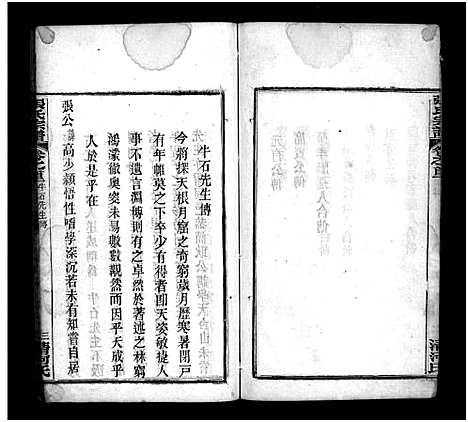 張氏宗譜
卷之首
清河氏
牛石先生傳
今將探天根月窟之奇窮歲月歷寒暑閉戶
有年帷英之下卒少有得者卽天姿敏捷人
事不遺言淵博則有之卓然於著述之林窮
鴻濛徹奧窔未易數數觀然而因乎天成乎
人於是乎在
張公高少穎悟性嗜學深沉若未有知嘗自居
張氏宗譜
卷之首
牛石先生傳
三
清河氏